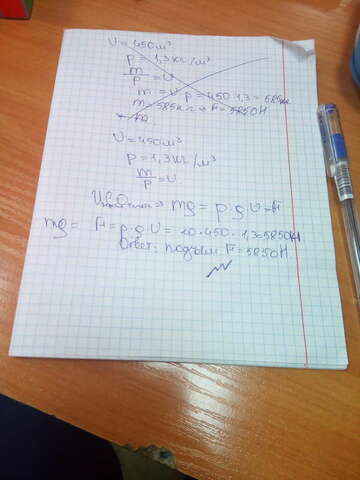 υ = 450 м³
ρ = 1,3 кг/м³
m/ρ = υ
m = υ ρ = 450 · 1,3 = 585 кг
m = 585 кг ⇒ F = 5850 Н
υ = 450 м³
ρ = 1,3 кг/м³
m/ρ = υ
⇒ mg = ρ · g · υ =
mg = F = ρ · g · υ = 10 · 450 · 1,3 = 5850 Н
Ответ: подъём F = 5850 Н